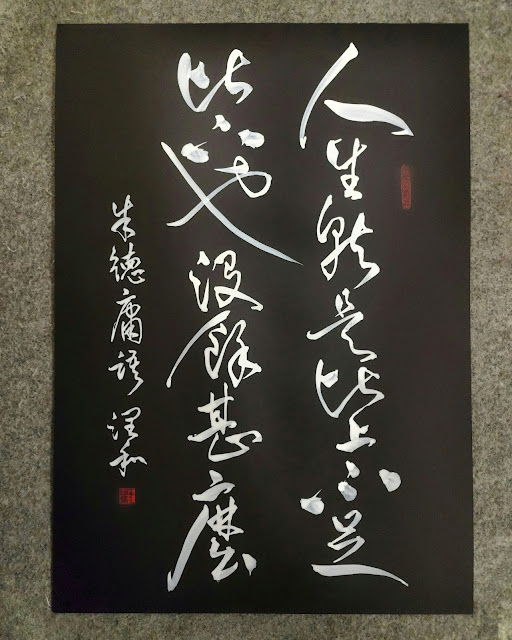 人生就是比上不足
比下也沒餘甚麼
朱德庸語